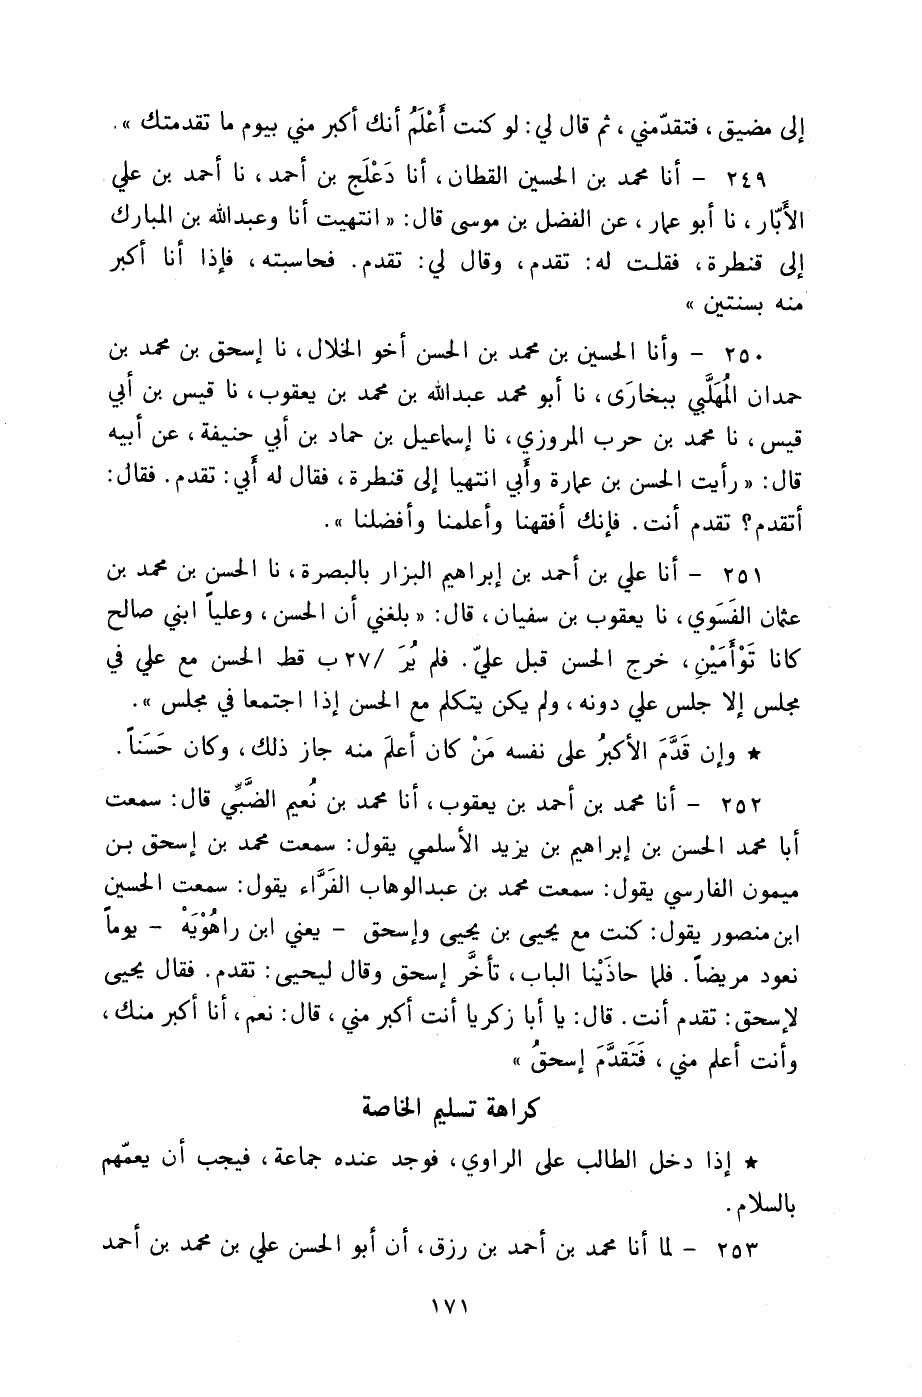 إلى مضيق ، فتقدّمني ، ثم قال لي : لو كنت أَعْلَمُ أنك أكبر مني بيوم ما تقدمتك » .
٢٤٩ - أنا محمد بن الحسين القطان ، أنا دَعْلَج بن أحمد ، نا أحمد بن علي
الأَبّار ، نا أبو عمار ، عن الفضل بن موسى قال : « انتهيت أنا وعبدالله بن المبارك
إلى قنطرة ، فقلت له : تقدم ، وقال لي : تقدم . فحاسبته ، فإذا أنا أكبر
منه بسنتين »
٢٥٠ - وأنا الحسين بن محمد بن الحسن أخو الخلال ، نا إسحق بن محمد بن
حمدان المُهَلَّبي ببخارَى ، نا أبو محمد عبدالله بن محمد بن يعقوب ، نا قيس بن أبي
قيس ، نا محمد بن حرب المروزي ، نا إسماعيل بن حماد بن أبي حنيفة ، عن أبيه
قال : « رأيت الحسن بن عمارة وأَبي انتهيا إلى قنطرة ، فقال له أَبي : تقدم . فقال :
أتقدم ؟ تقدم أنت . فإنك أفقهنا وأعلمنا وأفضلنا » .
٢٥١ - أنا علي بن أحمد بن إبراهيم البزار بالبصرة ، نا الحسن بن محمد بن
عثمان الفَسَوي ، نا يعقوب بن سفيان ، قال : « بلغني أن الحسن ، وعلياً ابني صالح
كانا تَوْأَمَيْنِ ، خرج الحسن قبل عليّ . فلم يُرَ /٢٧ ب قط الحسن مع علي في
مجلس إلا جلس علي دونه ، ولم يكن يتكلم مع الحسن إذا اجتمعا في مجلس » .
★ وإن قَدَّمَ الأكبرُ على نفسه مَنْ كان أعلمَ منه جاز ذلك ، وكان حَسَناً .
٢٥٢ - أنا محمد بن أحمد بن يعقوب ، أنا محمد بن نُعيم الضَّبِّي قال : سمعت
أبا محمد الحسن بن إبراهيم بن يزيد الأسلمي يقول : سمعت محمد بن إسحق بن
ميمون الفارسي يقول : سمعت محمد بن عبدالوهاب الفَرَّاء يقول : سمعت الحسين
ابن منصور يقول : كنت مع يحيى بن يحيى وإسحق - يعني ابن راهُوْيَهْ - يوماً
نعود مريضاً . فلما حاذَيْنا الباب ، تأخَّر إسحق وقال ليحيى : تقدم . فقال يحيى
لإسحق : تقدم أنت . قال : يا أبا زكريا أنت أكبر مني ، قال : نعم ، أنا أكبر منك ،
وأنت أعلم مني ، فَتَقدَّمَ إسحقُ »
كراهة تسليم الخاصة
★ إذا دخل الطالب على الراوي ، فوجد عنده جماعة ، فيجب أن يعمّهم
بالسلام .
٢٥٣ - لما أنا محمد بن أحمد بن رزق ، أن أبو الحسن علي بن محمد بن أحمد
١٧١